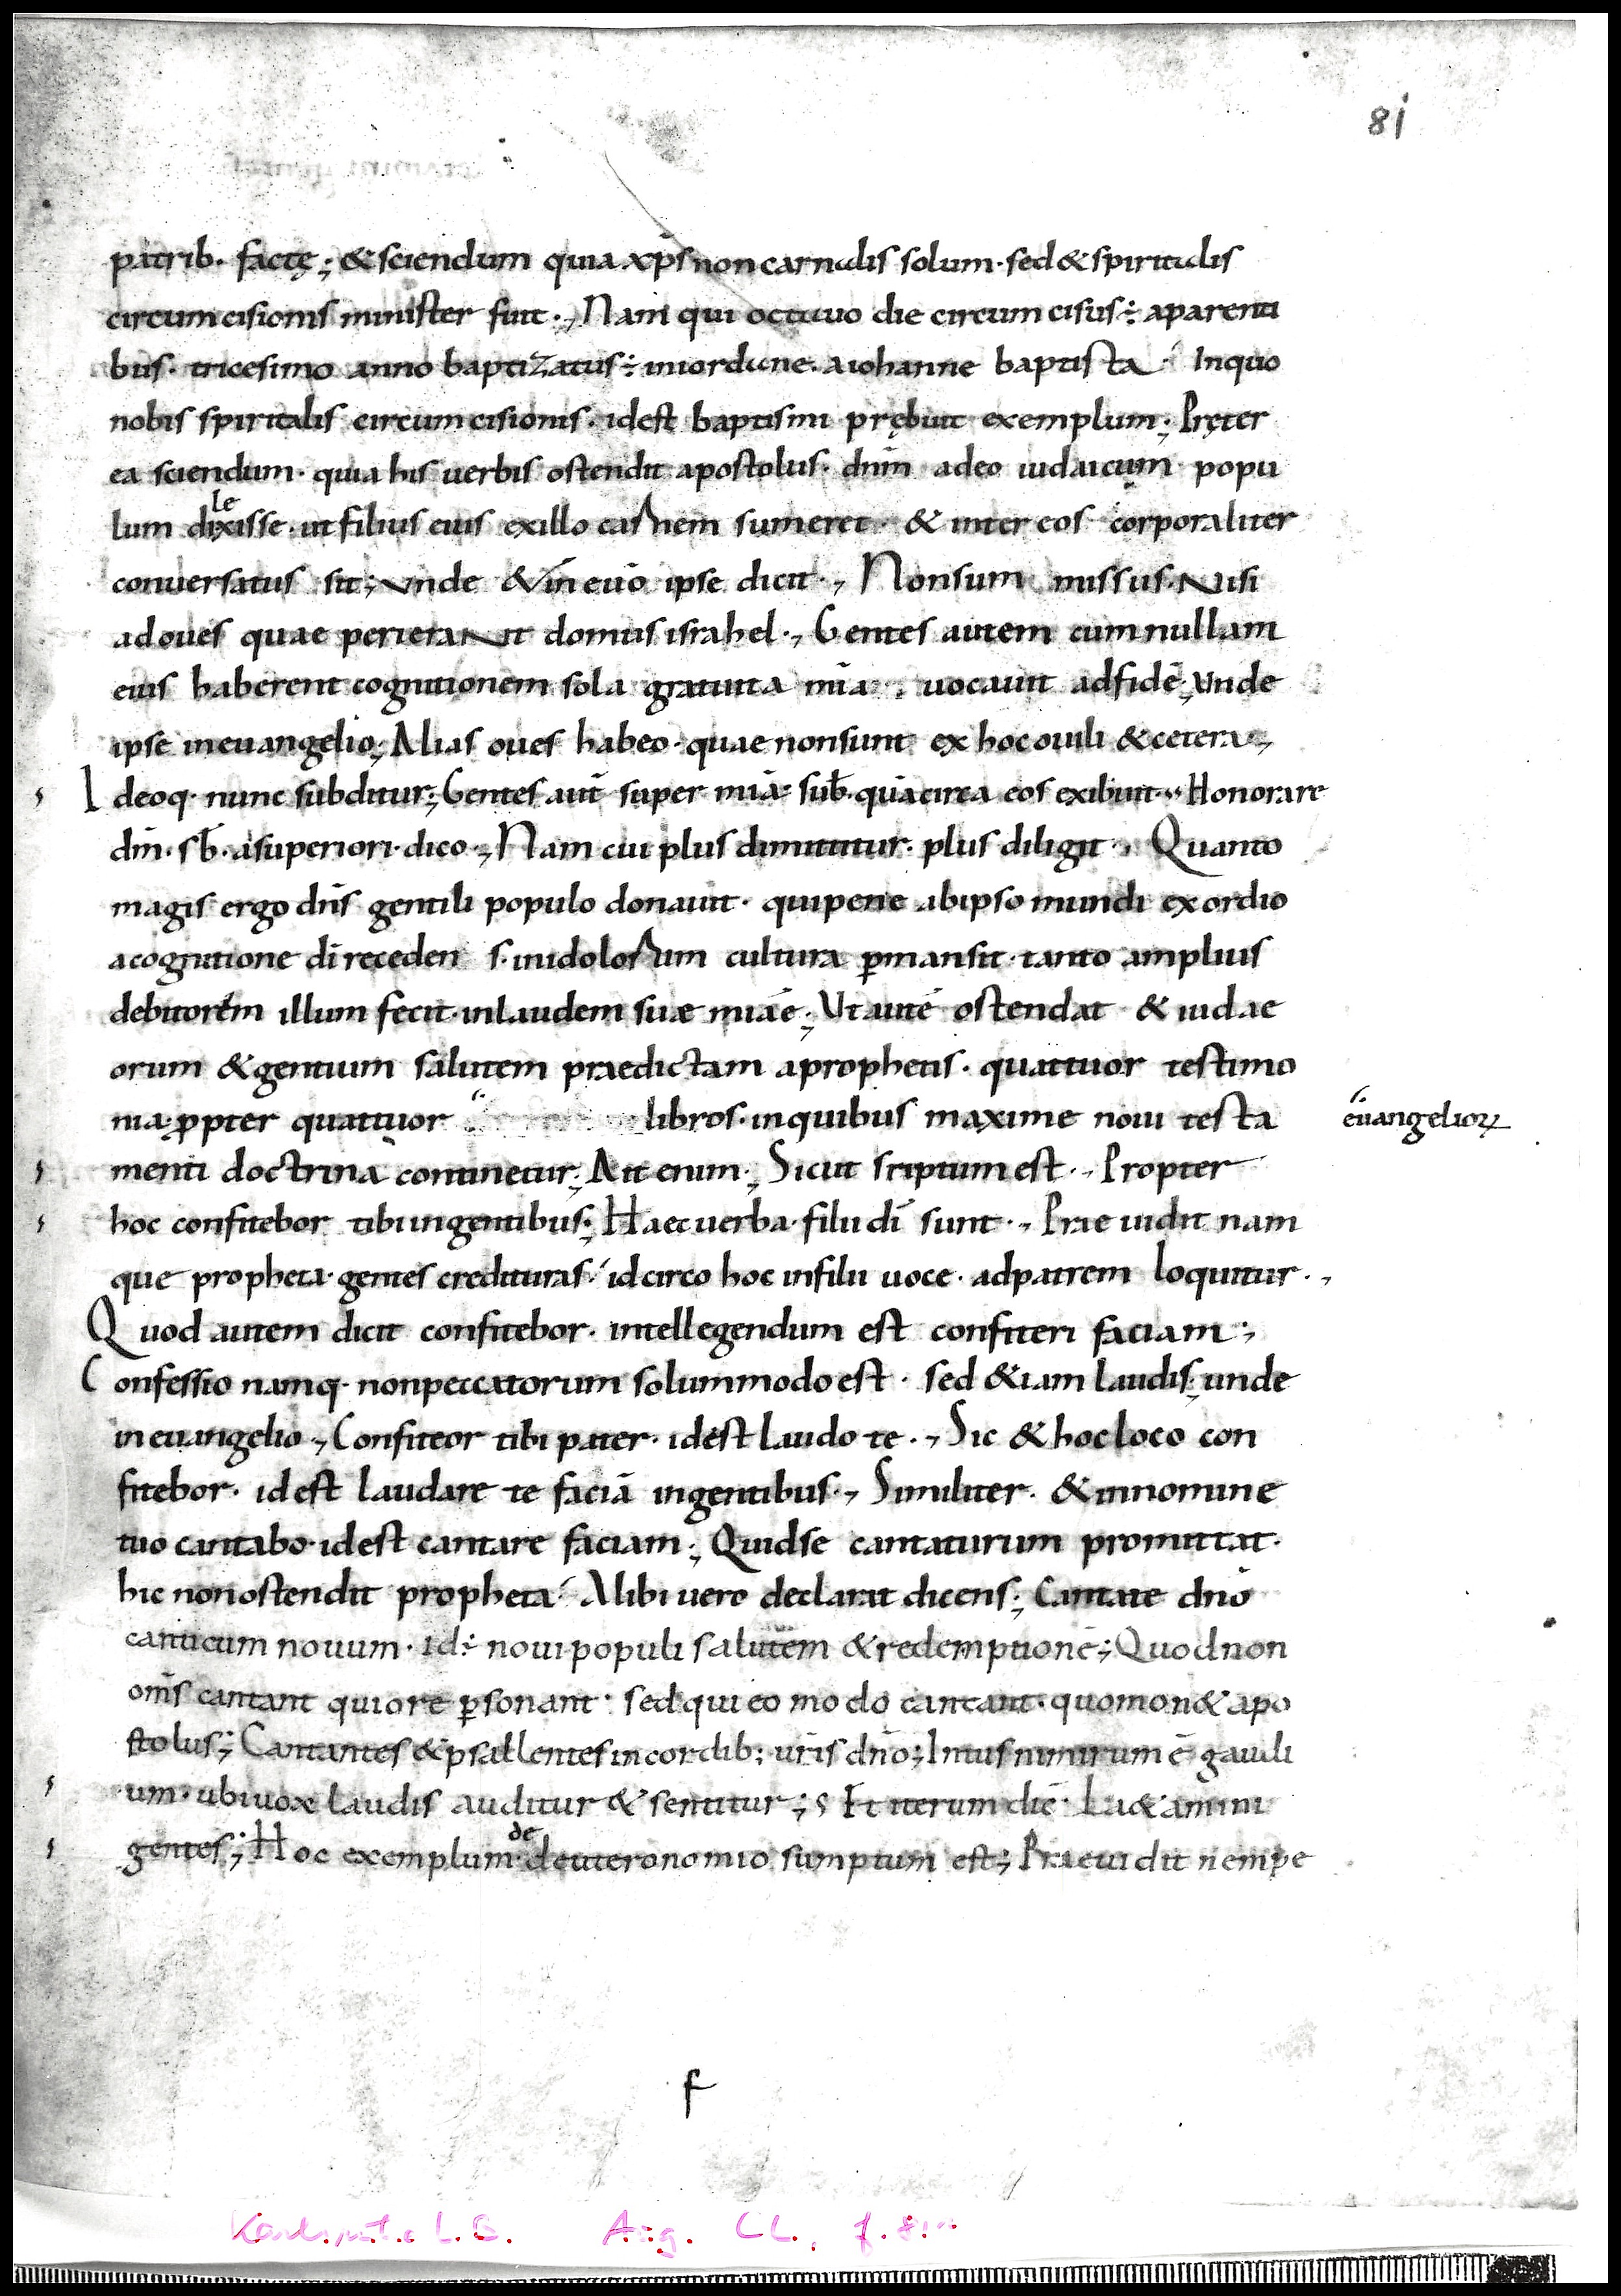 81
patrib· factę; & sciendum quia xp̄s non carnalis solum· sed & spiritalis
circumcisionis minister fuit·, Nam qui octauo die circumcisus÷ a parenti
bus· tricesimo anno baptizatus÷ in iordane· a iohanne baptista· In quo
nobis spiritalis circumcisionis· id est baptismi prębuit exemplum; Pręter
ea sciendum· quia his uerbis ostendit apostolus· dnm̄ adeo iudaicum popu
le
lum dixisse· ut filius eius ex illo carnem sumeret· & inter eos corporaliter
conuersatus sit; Vnde & in euō ipse dicit·, Non sum missus· Nisi
ad oues quae perieraNt domus israhel·, Gentes autem cum nullam
eius haberent cognitionem sola gratuita mīa· uocauit ad fidē; Vnde
ipse in euangelio; Alias oues habeo· quae non sunt ex hoc ouili & cetera·,
Ideoq· nunc subditur; Gentes aūt super mīa· sub̄· quā circa eos exibuit·, Honorare
dm̄· sb̄· a superiori· dico·, Nam cui plus dimittitur· plus diligit·, Quanto
magis ergo dn̄s gentili populo donauit· qui pene ab ipso mundi exordio
a cognitione dī receden s· in idolorum cultura p̄mansit· tanto amplius
debitorem illum fecit· in laudem suæ mīae; Vt autē ostendat & iudae
orum & gentium salutem praedictam a prophetis· quattuor testimo
nia· p̄pter quattuor libros· in quibus maxime noui testa
euangelioꝝ
menti doctrina continetur; Ait enim; Sicut scriptum est·, Propter
hoc confitebor tibi in gentibus; Haec uerba· filii dī sunt·, Prae uidit nam
que propheta· gentes credituras· idcirco hoc in filii uoce· ad patrem loquitur·,
Quod autem dicit confitebor· intellegendum est confiteri faciam;
Confessio namq· non peccatorum solummodo est· sed &iam laudis; unde
in euangelio·, Confiteor tibi pater· id est laudo te·, Sic & hoc loco con
fitebor· id est laudare te faciā in gentibus·, Similiter· & in nomine
tuo cantabo· id est cantare faciam; Quid se cantaturum promittat·
hic non ostendit propheta· Alibi uero declarat dicens; Cantate dn̄o
canticum nouum· id÷ noui populi salutem & redemptionē; Quod non
om̄s cantant qui ore p̄sonant· sed qui eo modo cantant· quo mon& apo
stolus; Cantantes & psallentes in cordib; ur̄is dn̄o; Intus nimirum ē gaudi
um· ubi uox laudis auditur & sentitur; Et iterum dic̄· La&amini
de
gentes; Hoc exemplum· deuteronomio sumptum est; Praeuidit nempe
f
Aug. CL, f. 81r